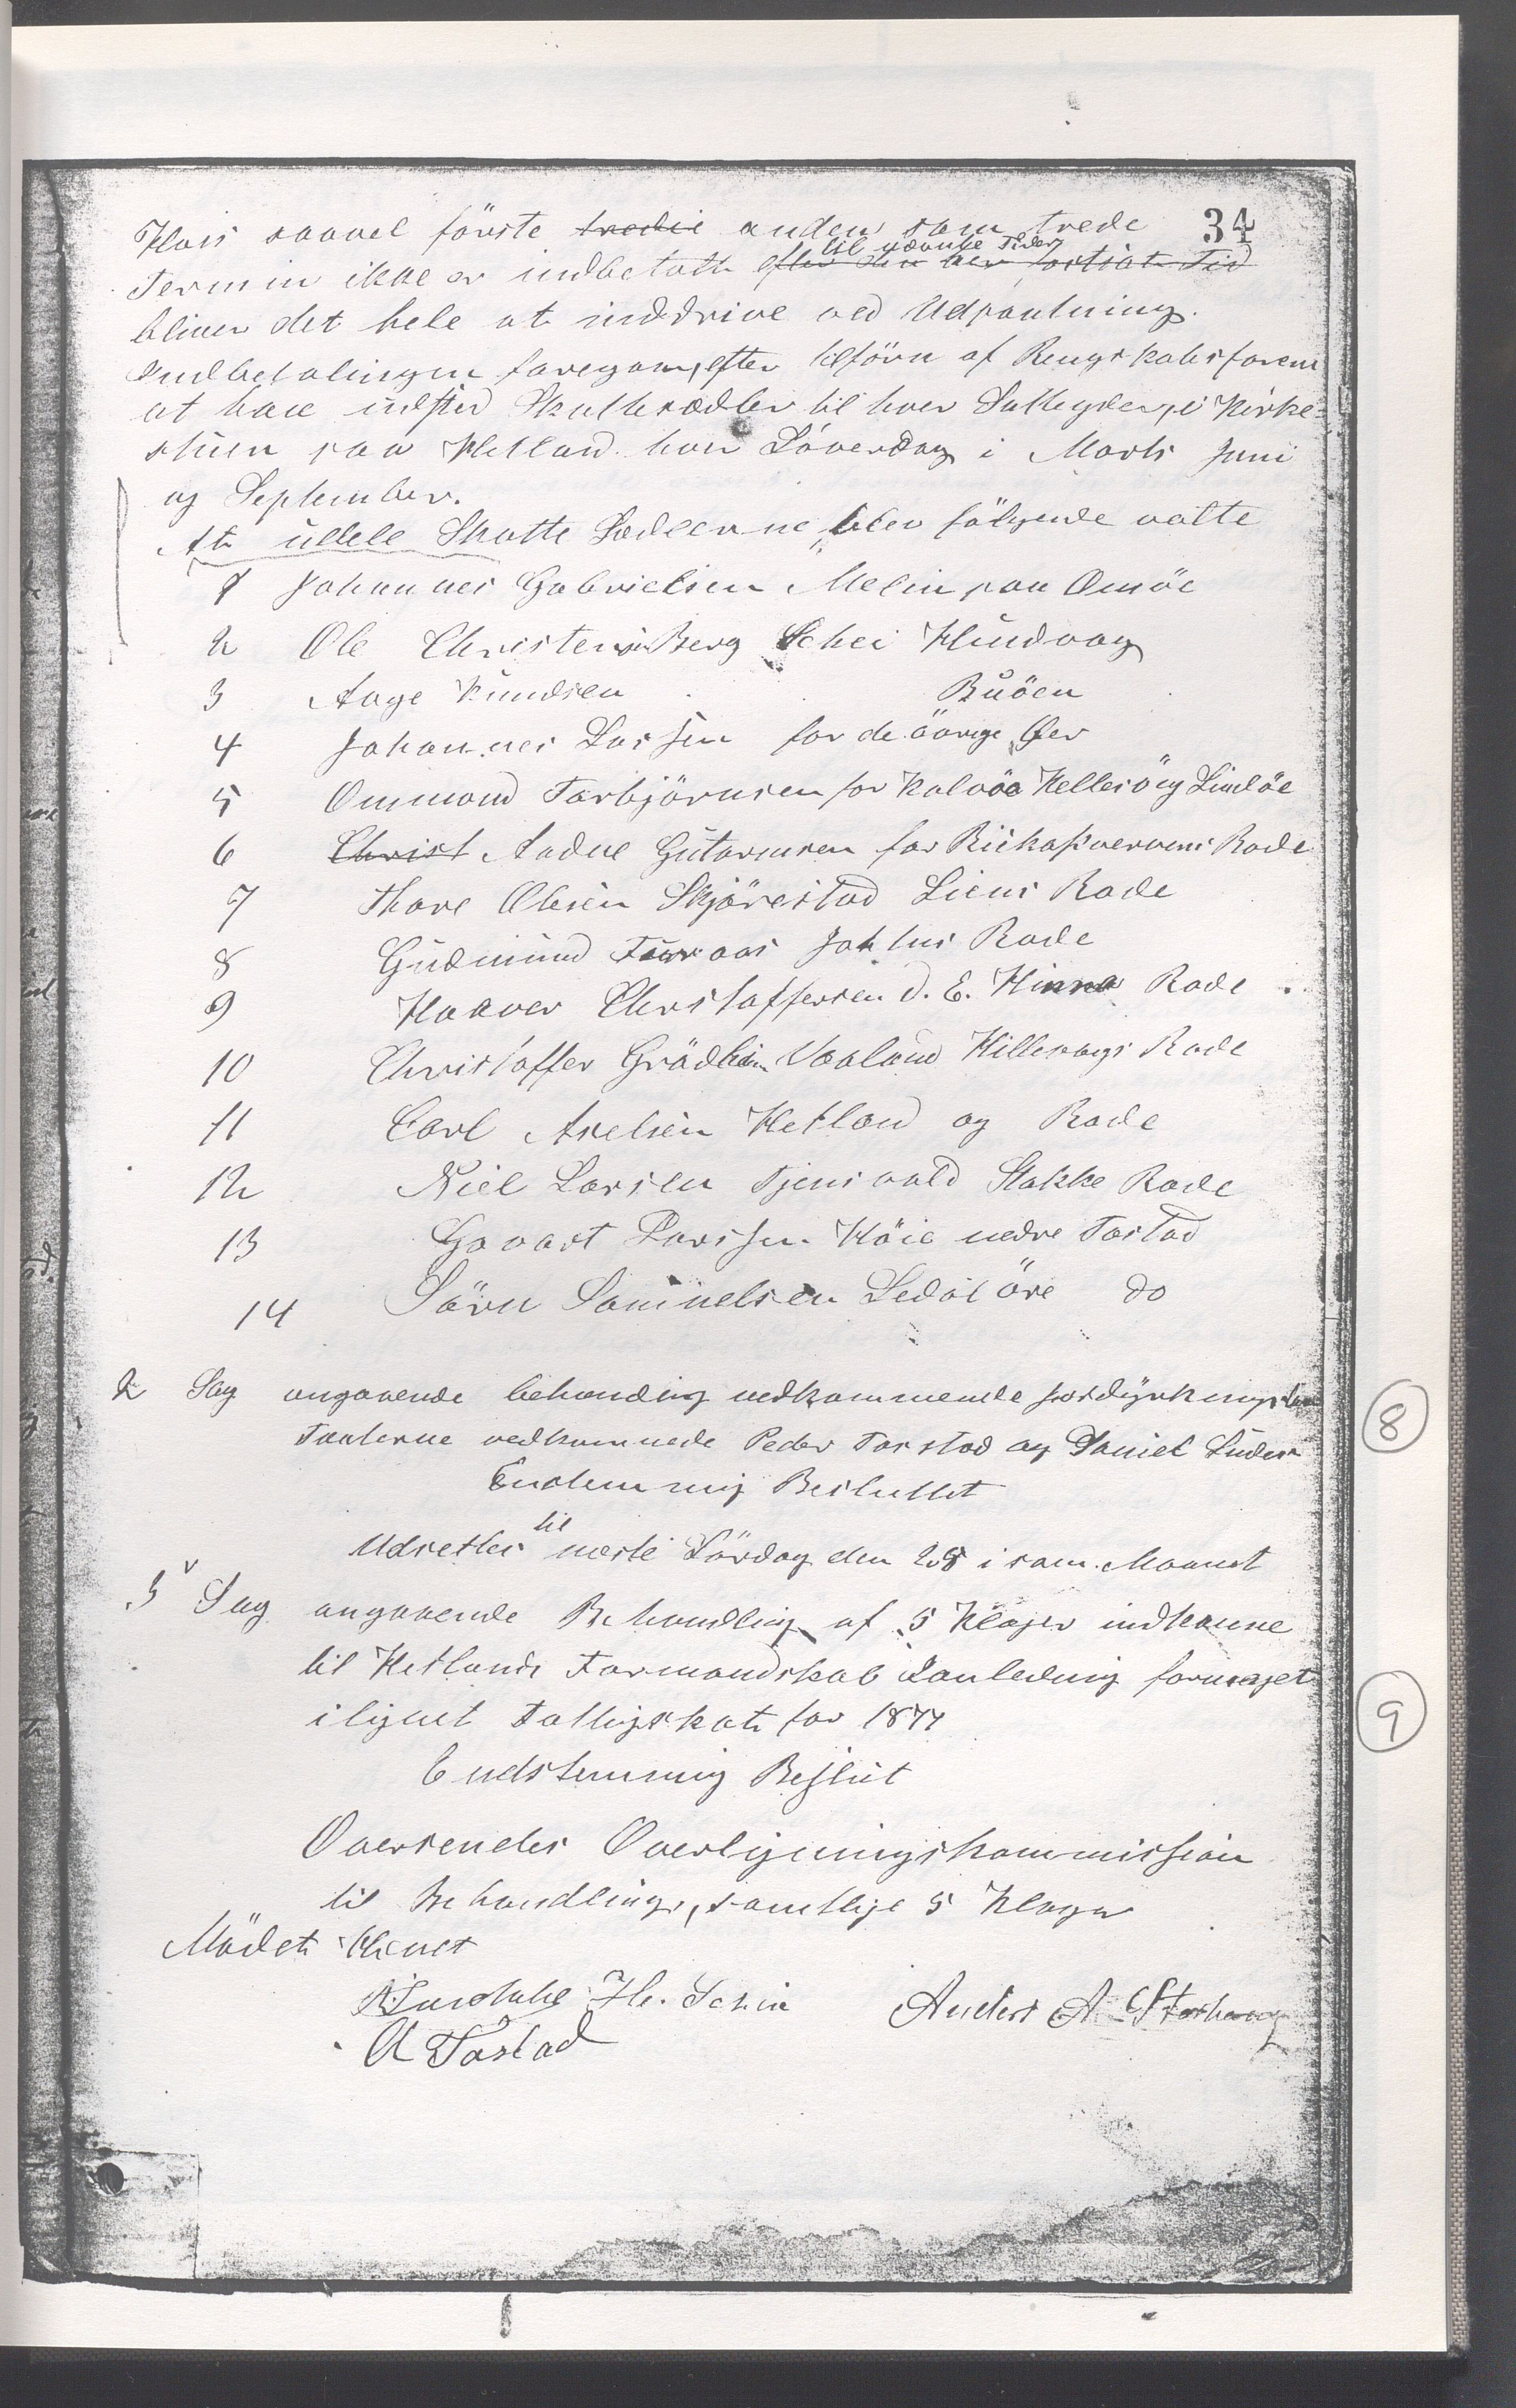 34
Hvis saavel förste tredie anden som trede
til nævnte Tider
Termin ikke er indbetalt efter den her fortsat Tid
bliver det hele at inddrive ved Udpantning.
Indbetalingen foregaar, efter tilförn af Rengskabsföreren
at have udsted Skattesædler til hver Satteyder, i Kirke-
stuen paa Hetland hver Löverdag i Marts Juni
og September.
At uddele Skatte Sedlerne blev fölgende valte
1 Johannes Gabrielsen Meling paa Omöe
2 Ole Christensen Berg Schei Hundvaag
3 Aage Knudsen Buöen
4 Johannes Larsen for de övrige Öer
5 Ommond Torbjörnsen for Kalvöe Hellesö og Lindöe
6 Christ Aadne Gutormsen for Riskaqvernens Rode
7 Thore Olsen Skjörestad Liens Rode
8 Gudmund Tauraas Jahtus Rode
9 Haaver Christoffersen d. E. Hinna Rode
10 Christoffer Grödhein Vaaland Hillevaags Rode
11 Carl Axelsen Hetland og Rode
12 Niel Larsen Tjensvold Stokke Rode
13 Govart Larssen Höie nedre Tastad
14 Sörn Samuelsen Sedal övre do
2 Sag angaaende behanding vedkommende Jordyrkningslaan
Taxterne vedkommede Peder Tarstad og Daniel
Enstemmig Besluttet
til
Udsettes neste Lördag den 28 i sam. Maanet
3 Sag angaaende Behandling af 5 Klager indkomne
til Hetlands Formandskab I anledning formeget
ilignet Fattigskat for 1877
Endstemmig Beslut
Oversendes Overligningskommission
til Behandling, samtlige 5 Klager
Mödet Hevet
H. Schie Anders A Storhoug
A Tastad
8
9